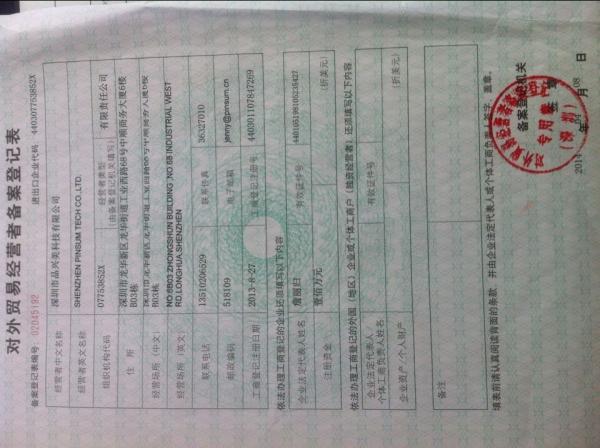 对外贸易经营者备案登记表
备案登记表编号 02045192 进出口企业代码 440307753852X
经营者中文名称 深圳市品兴美科技有限公司
经营者英文名称 SHENZHEN PINSUM TECH CO.,LTD.
组织机构代码 07753852X 经营者类型 (由备案登记机关填写) 有限责任公司
住 所 深圳市龙华新区龙华街道工业西路68号中顺商务大厦6楼
B03栋
经营场所(中文) 深圳市龙华新区龙华街道工业西路68号中顺商务大厦6楼
B03栋
经营场所(英文) NO.6B03 ZHONGSHUN BUILDING ,NO.68 INDUSTRIAL WEST
RD,LONGHUA,SHENZHEN
联系电话 13510206529 联系传真 36327010
邮政编码 518109 电子邮箱 jenny@pnsum.cn
工商登记注册日期 2013-8-27 工商登记注册号 440301107847269
依法办理工商登记的企业还须填写以下内容
企业法定代表人姓名 有效证件号
注册资金 壹佰万元 (折美元)
依法办理工商登记的外国(地区)企业或个体工商户(独资经营者)还须填写以下内容
企业法定代表人/
个体工商负责人姓名 有效证件号
企业资产/个人财产 (折美元)
备注
填表前请认真阅读背面的条款,并由企业法定代表人或个体工商负责人签字、盖章。
备案登记机关
签 章
专用章
(深圳)
2014 年 04 月 08 日